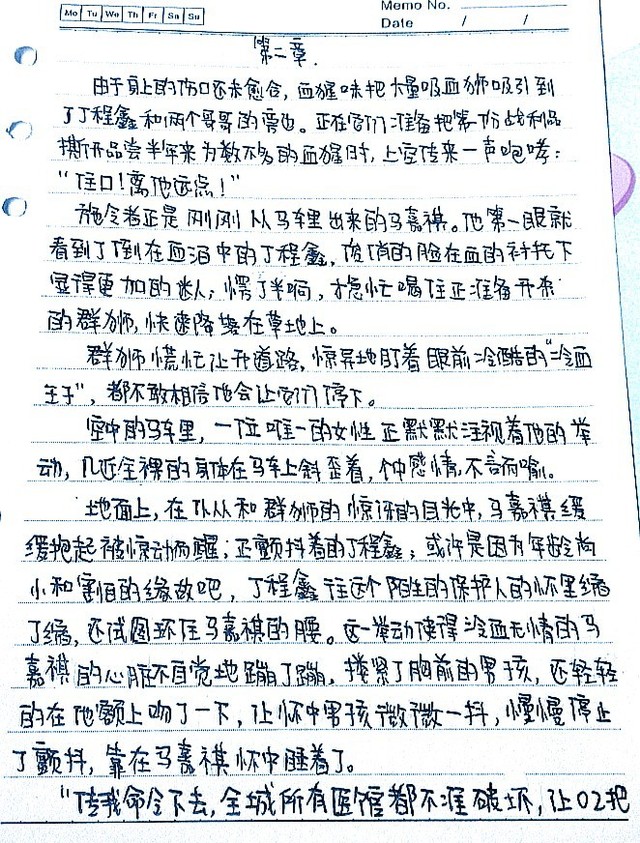 Mo Tu We Th Fr Sa Su
Memo No.
Date / /
第二章.
由于身上的伤口还未愈合，血腥味把大量吸血狮吸引到
了丁程鑫和两个哥哥的旁边。正在它们准备把第一份战利品
撕开品尝半年来为数不多的血腥时，上空传来一声咆哮：
“住口！离他远点！”
施令者正是刚刚从马车里出来的马嘉祺。他第一眼就
看到了倒在血泊中的丁程鑫，俊俏的脸在血的衬托下
显得更加的迷人；愣了半晌，才急忙喝住正准备开杀
的群狮，快速降落在草地上。
群狮慌忙让开道路，惊异地盯着眼前冷酷的“冷面
王子”，都不敢相信他会让它们停下。
空中的马车里，一位唯一的女性正默默注视着他的举
动，几近全裸的身体在马车上斜歪着，个中感情不言而喻。
地面上，在仆从和群狮的惊讶的目光中，马嘉祺缓
缓抱起被惊动而醒；正颤抖着的丁程鑫；或许是因为年龄尚
小和害怕的缘故吧，丁程鑫往这个陌生的保护人的怀里缩
了缩，还试图环住马嘉祺的腰。这一举动使得冷血无情的马
嘉祺的心脏不自觉地蹦了蹦，搂紧了胸前的男孩，还轻轻
的在他额上吻了一下，让怀中男孩微微一抖，慢慢停止
了颤抖，靠在马嘉祺怀中睡着了。
“传我命令下去，全城所有医馆都不准破坏，让02把